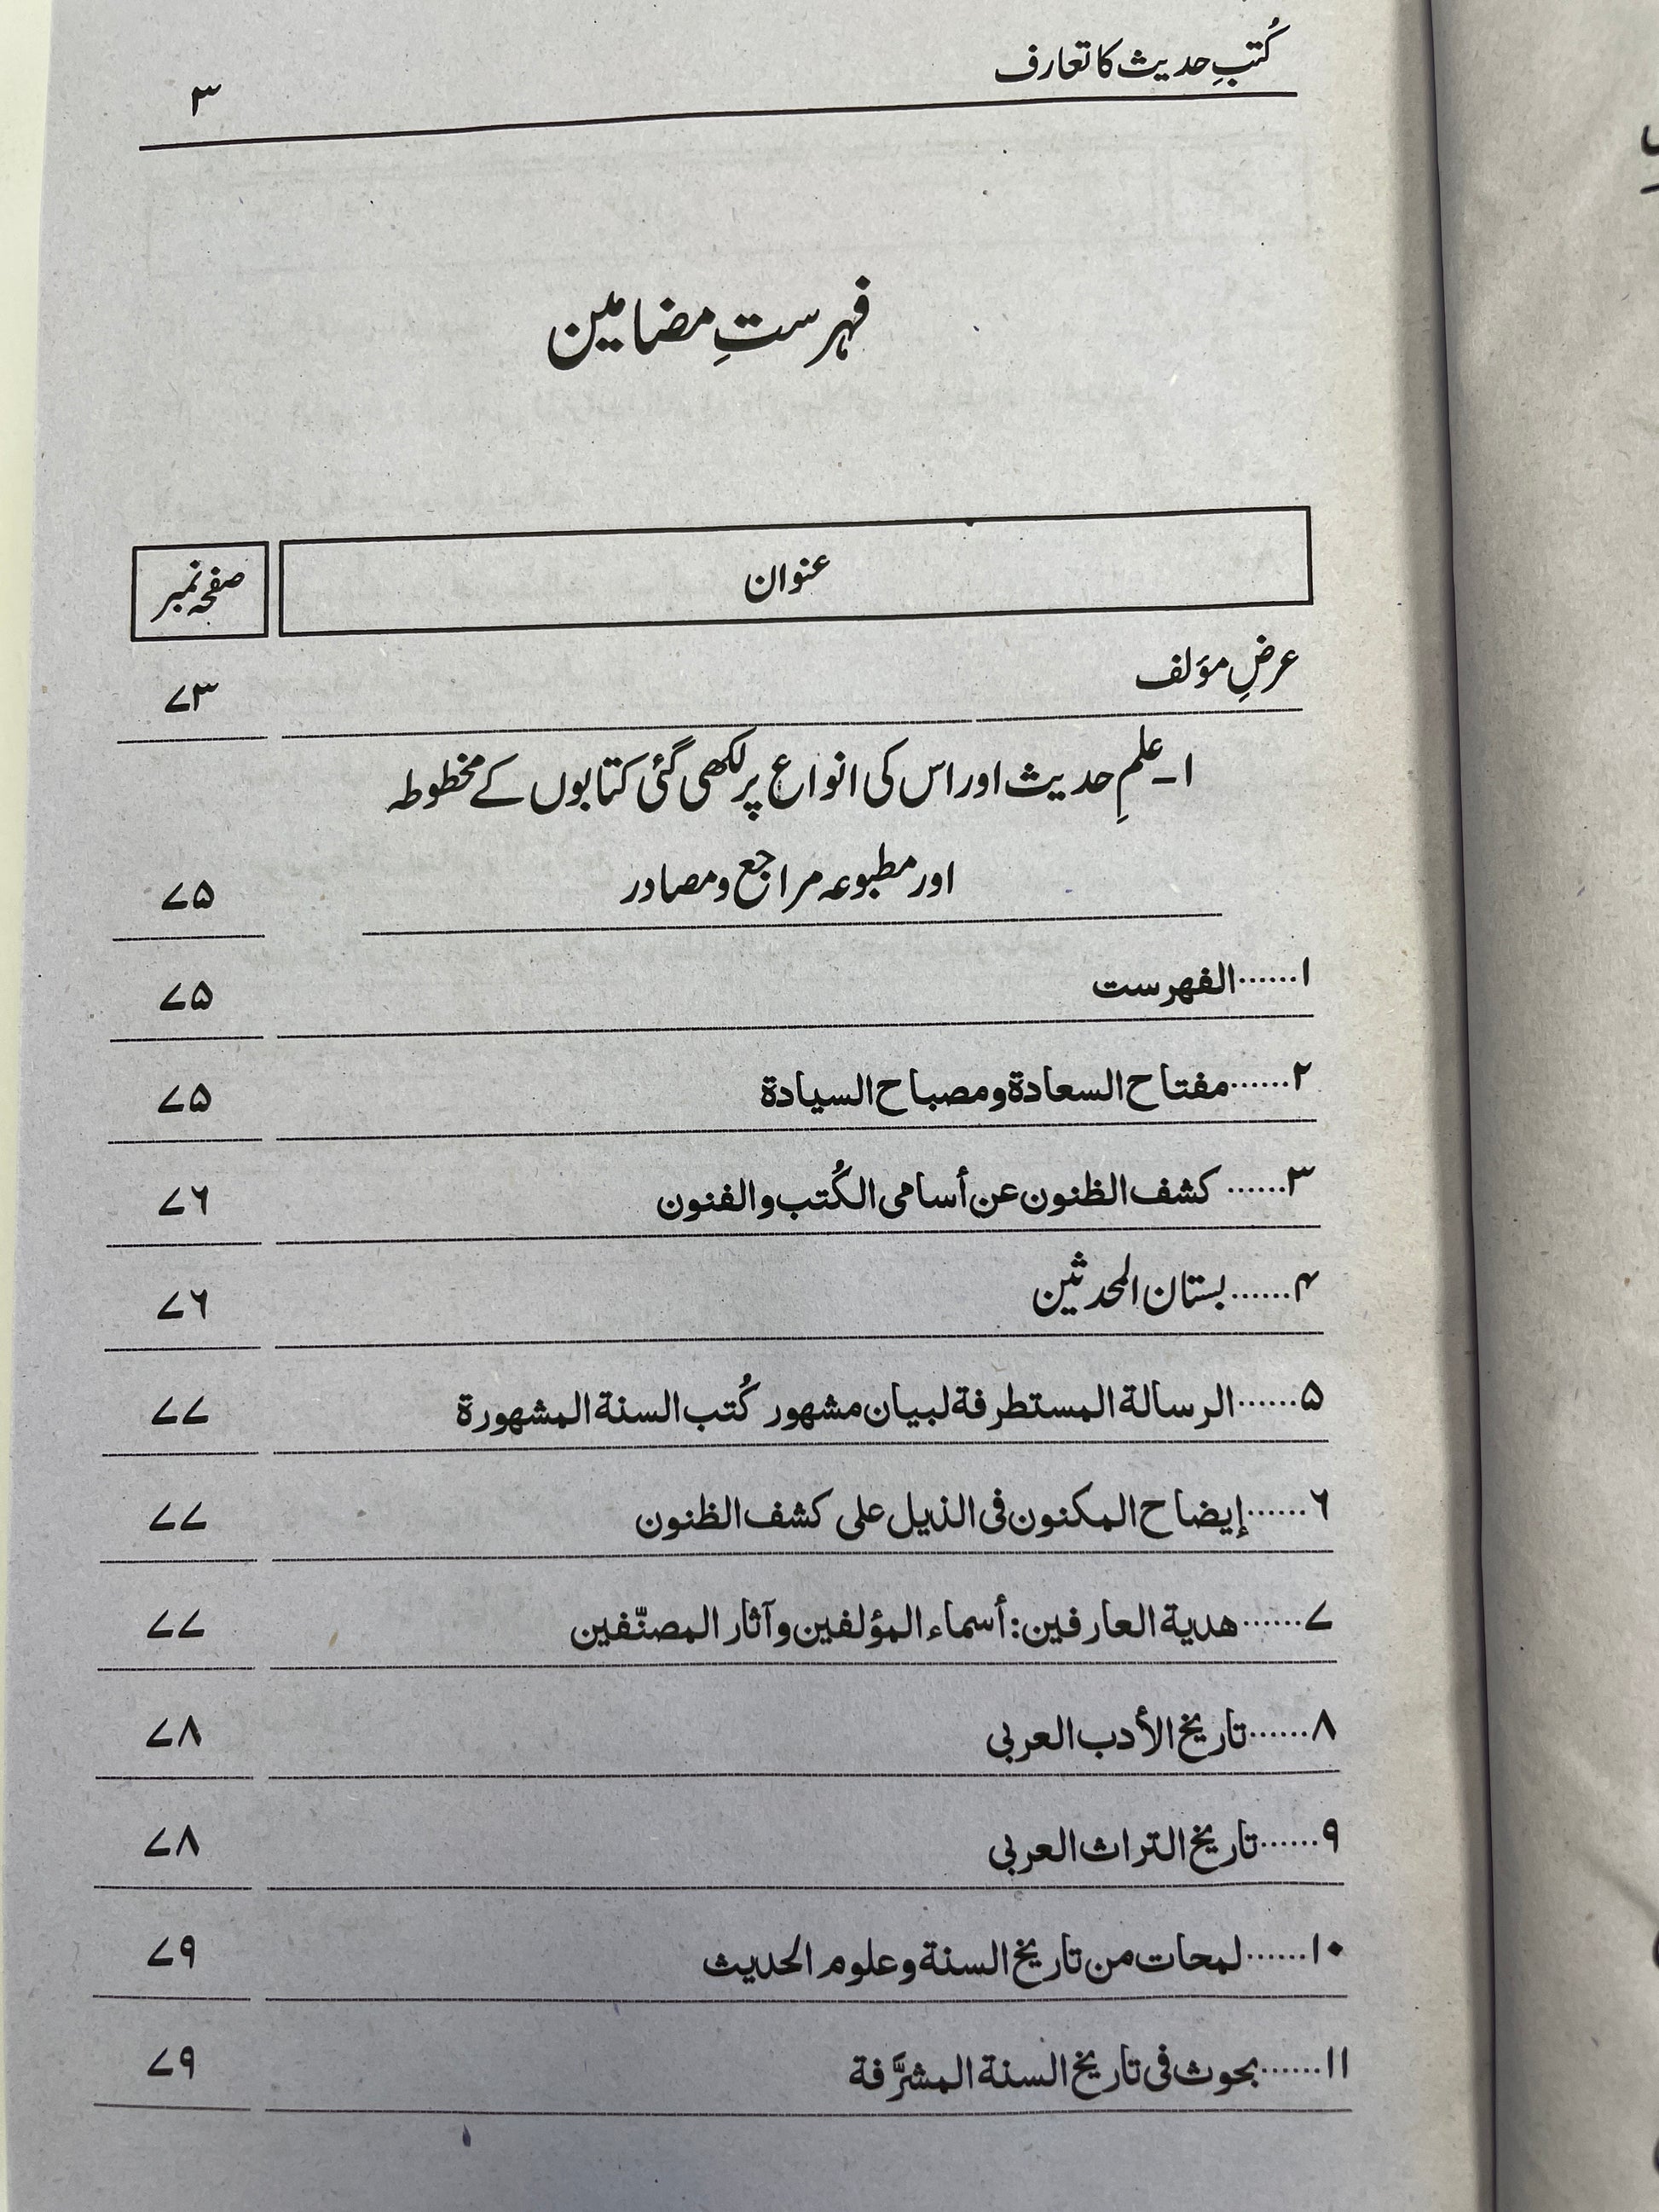 کُتبِ حدیث کا تعارف ۳
فہرستِ مضامین
عنوان صفحہ نمبر
عرضِ مؤلف ۷۳
۱۔ علمِ حدیث اور اس کی انواع پر لکھی گئی کتابوں کے مخطوطہ
اور مطبوعہ مراجع و مصادر ۷۵
۱......الفهرست ۷۵
۲......مفتاح السعادة ومصباح السيادة ۷۵
۳...... كشف الظنون عن أسامى الكُتب والفنون ۷۶
۴......بستان المحدثین ۷۶
۵......الرسالة المستطرفة لبيان مشهور كُتب السنة المشهورة ۷۷
۶......إيضاح المكنون فى الذيل على كشف الظنون ۷۷
۷......هدية العارفين: أسماء المؤلفين وآثار المصنّفين ۷۷
۸......تاريخ الأدب العربى ۷۸
۹......تاريخ التراث العربى ۷۸
۱۰......لمحات من تاريخ السنة وعلوم الحديث ۷۹
۱۱......بحوث فى تاريخ السنة المشرَّفة ۷۹